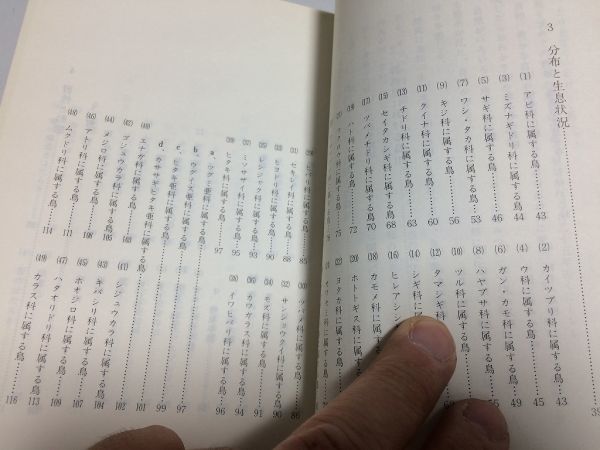 3 分布と生息状況……39
(1) アビ科に属する鳥……43 (2) カイツブリ科に属する鳥……43
(3) ミズナギドリ科に属する鳥……44 (4) ウ科に属する鳥……45
(5) サギ科に属する鳥……46 (6) ガン・カモ科に属する鳥……49
(7) ワシ・タカ科に属する鳥……53 (8) ハヤブサ科に属する鳥……55
(9) キジ科に属する鳥……56 (10) ツル科に属する鳥……
(11) クイナ科に属する鳥……60 (12) タマシギ科
(13) チドリ科に属する鳥……63 (14) シギ科に
(15) セイタカシギ科に属する鳥……68 (16) ヒレアシシ
(17) ツバメチドリ科に属する鳥……70 (18) カモメ科に属する
(19) ハト科に属する鳥……72 (20) ホトトギス科に属する鳥
75 (22) ヨタカ科に属する鳥
カワセミ科に属する鳥
(29) ヒバリ科に属する鳥……85 (30) ツバメ科に属する鳥……86
(31) セキレイ科に属する鳥……88 (32) サンショウクイ科に属する鳥……90
(33) ヒヨドリ科に属する鳥……90 (34) モズ科に属する鳥……91
(35) レンジャク科に属する鳥……93 (36) カワガラス科に属する鳥……94
(37) ミソサザイ科に属する鳥……95 (38) イワヒバリ科に属する鳥……96
(39) ヒタキ科に属する鳥……97
a、ツグミ亜科に属する鳥……97
b、ウグイス亜科に属する鳥……99
c、ヒタキ亜科に属する鳥……101
d、カササギヒタキ亜科に属する鳥……102
(40) エナガ科に属する鳥……103 (41) シジュウカラ科に属する鳥……104
(42) ゴジュウカラ科に属する鳥……105 (43) キバシリ科に属する鳥……107
(44) メジロ科に属する鳥……108 (45) ホオジロ科に属する鳥……109
(46) アトリ科に属する鳥……111 (47) ハタオリドリ科に属する鳥……113
(48) ムクドリ科に属する鳥……114 (49) カラス科に属する鳥……116